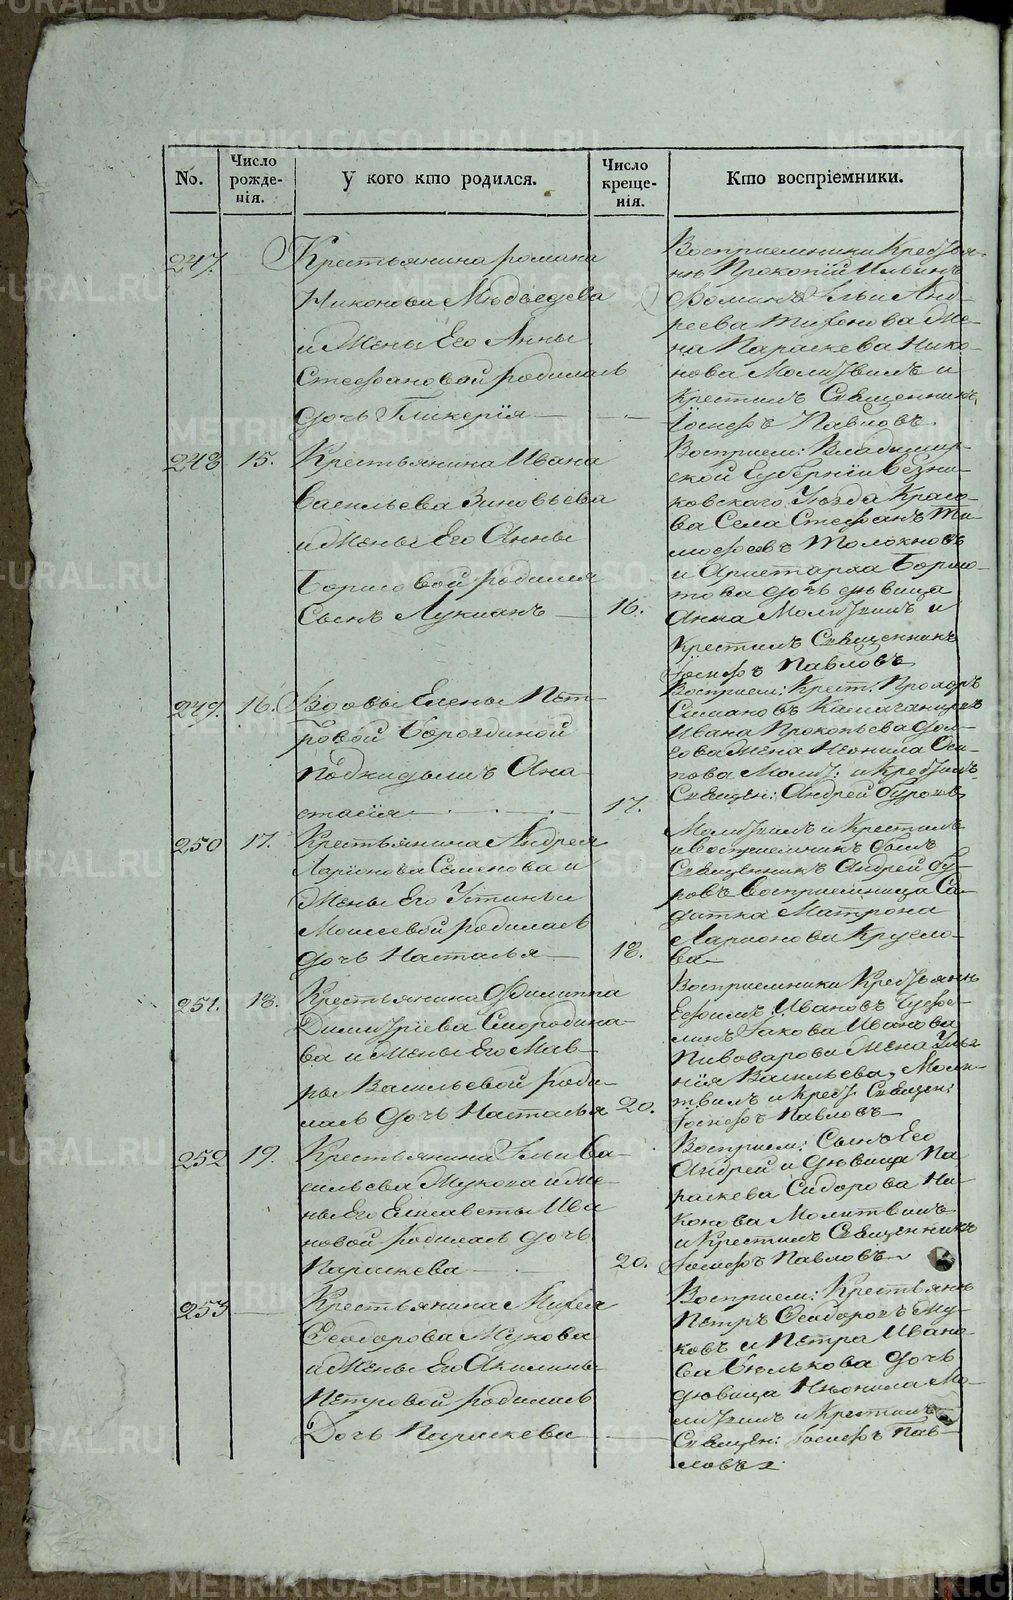 METRIKI.GASO-URAL.RU
No.
Число рожде-нія.
У кого кто родился.
Число креще-нія.
Кто воспріемники.
247.
Крестьянина Романа
Никонова Медведева
и Жены Его Анны
Стефановой родилась
дочь Гликерія
Восприемники Кресть-
Прокопій Ильинъ
Фоминъ Ильи Анд-
реева Тихонова Же-
на Параскева Нико-
нова Молитвилъ и
Крестилъ Священникъ
Іосифъ Павловъ.
248 15.
Крестьянина Ивана
Васильева Зиновьева
и Жены Его Анны
Борисовой родился
Сынъ Лукианъ
16.
Восприем: Владимир-
ской Губерніи Вязни-
ковскаго Уѣзда
Села Стефанъ Ти-
мофеевъ Толокновъ
и Аристарха
дочь девица
Анна Молитвилъ и
Крестилъ Священникъ
Іосифъ Павловъ
249. 16.
Вдовы Елены Пет-
ровой Бороздиной
подкидышъ Ана-
стасія
17.
Восприем: Крест: Прохоръ
Ивана Прокопьева
Жена Неонила Оси-
пова Молит: и Крестилъ
Священ: Андрей Буровъ
250 17.
Крестьянина Андрея
Ларіонова Семенова и
Жены Его Устиньи
Моисеевой родилась
дочь Наталья
18.
Молитвилъ и Крестилъ
и восприемникъ былъ
Священникъ Андрей Бу-
ровъ восприемница Со-
датка Матрона
Ларионова Кругло-
ва
251. 18.
Крестьянина Филиппа
Димитріева Смородина-
ва и Жены Его Мав-
ры Васильевой роди-
лась дочь Наталья
20.
Восприемники Крестьянинъ
Ефимъ Ивановъ
Іакова Иванова
Пивоварова Жена
Васильева, Моли-
твилъ и Крест. Священ:
Іосифъ Павловъ
252 19.
Крестьянина Ильи Ва-
сильева Жукова и Же-
ны Его Елисаветы Ива
новой родилась дочь
Параскева
20.
Восприем: Сынъ Его
Андрей и девица Па-
раскева Сидорова Ни-
конова Молитвилъ
и Крестилъ Священникъ
Іосифъ Павловъ
253
Крестьянина
Феодорова Жукова
и Жены Его Акилины
Петровой родилась
Дочь Параскева
Восприем: Крестьянинъ
Петръ Феодоровъ Жу-
ковъ и Петра Ивано-
ва дочь
девица Неонила Мо-
литвилъ и Крестилъ
Священ: Іосифъ Пав-
ловъ